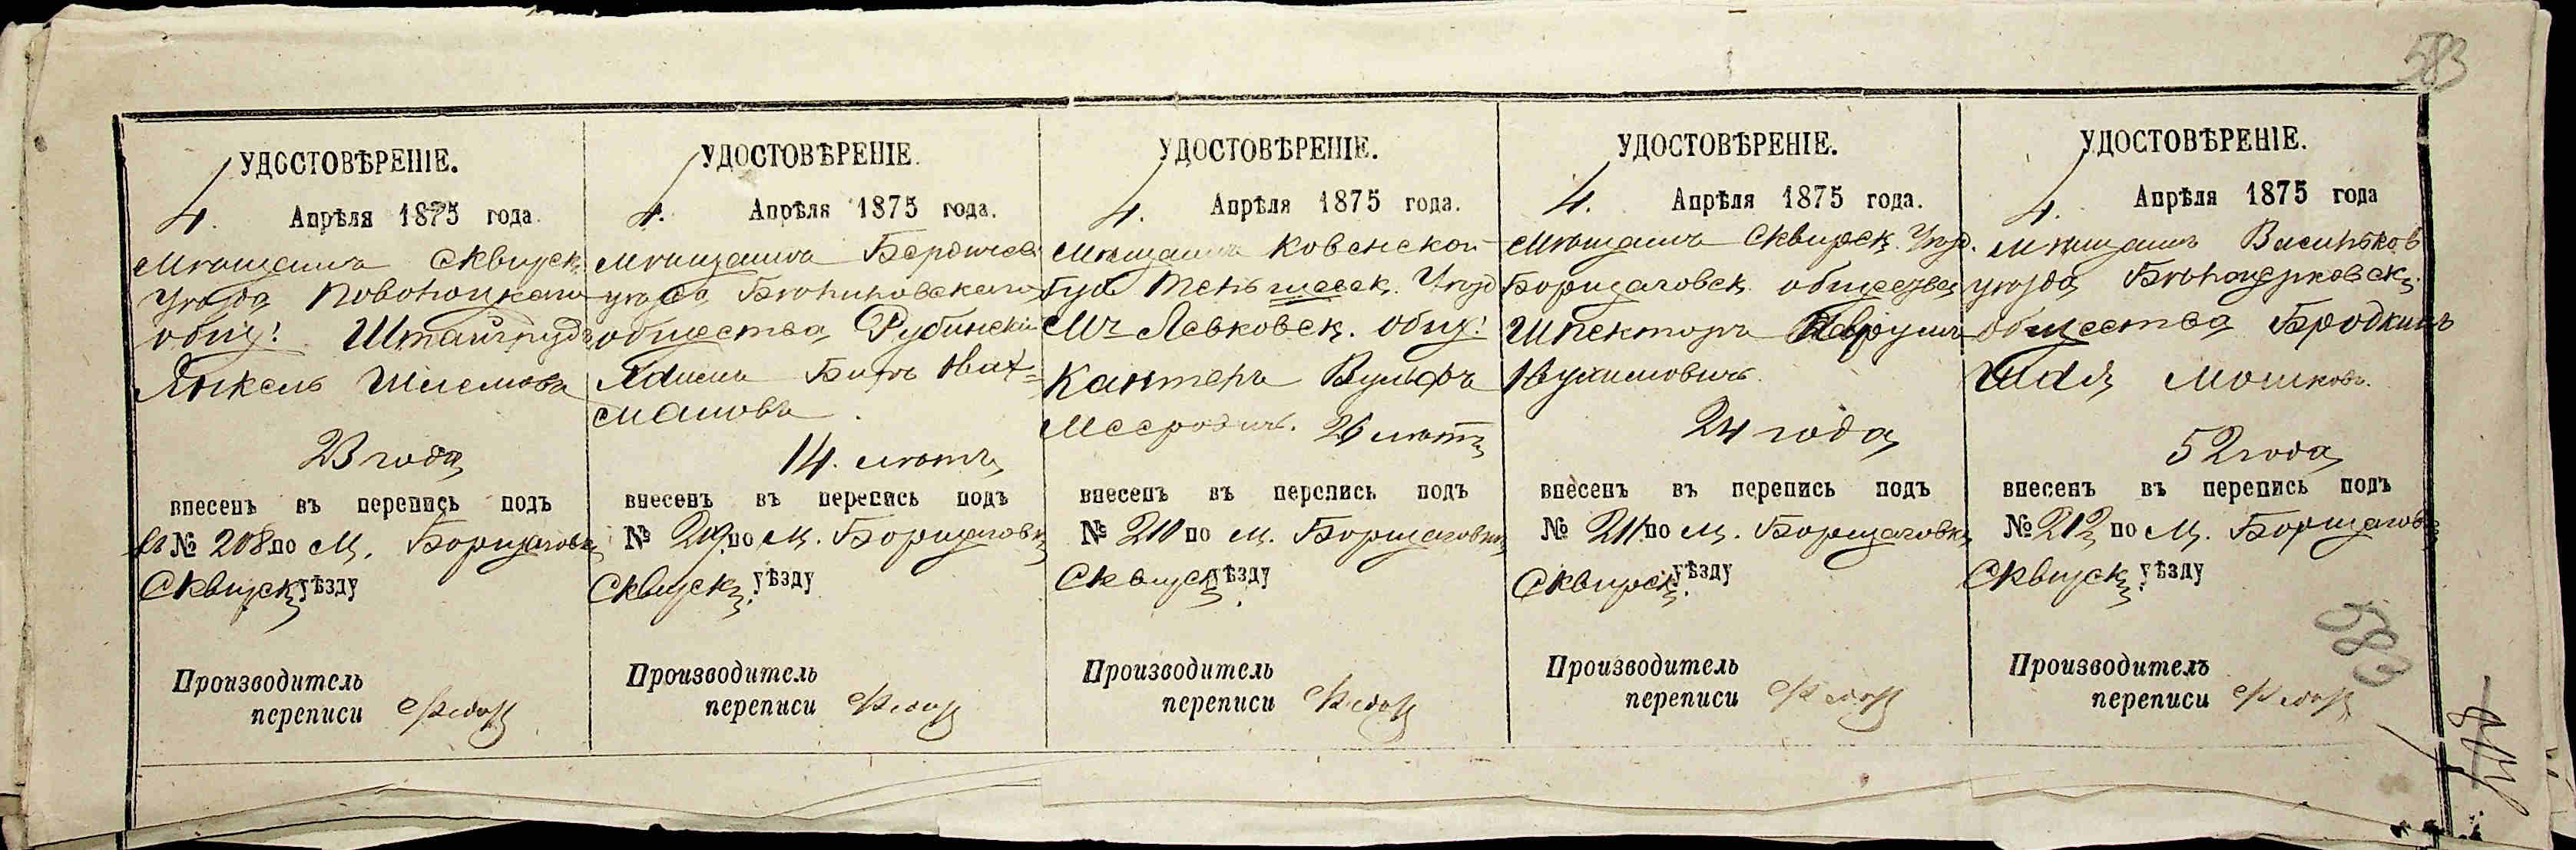 583
УДОСТОВѢРЕНІЕ.
4. Апрѣля 1875 года.
Мѣщанинъ Сквирск.
Уѣзда Поволоцкаго
общ:
Янкель Шлемова
23 года
внесенъ въ перепись подъ
№ 208 по М. Борщаговк
Сквирск уѣзду
Производитель
переписи
УДОСТОВѢРЕНІЕ.
4. Апрѣля 1875 года.
Мѣщанинъ Бердичев
уѣзда Бѣлиловскаго
общества Рубинскій
мановъ
14. лѣтъ
внесенъ въ перепись подъ
№ 209 по М. Борщаговк
Сквирск. уѣзду
Производитель
переписи
УДОСТОВѢРЕНІЕ.
4. Апрѣля 1875 года.
Мѣщанинъ Ковенской
Губ. Тельшевск. Уѣзд
Мч Левковск. Общ:
Кантеръ Вульфъ
Мееровичъ. 26 лѣтъ
внесенъ въ перепись подъ
№ 210 по М. Борщаговк
Сквирск. уѣзду
Производитель
переписи
УДОСТОВѢРЕНІЕ.
4. Апрѣля 1875 года.
Мѣщанинъ Сквирск. Уѣзд.
Борщаговск. общества
Шпекторъ Аврумъ
24 года
внесенъ въ перепись подъ
№ 211. по М. Борщаговк
Сквирск. уѣзду
Производитель
переписи
УДОСТОВѢРЕНІЕ.
4. Апрѣля 1875 года
мѣщанинъ Васильков
уѣзда Бѣлоцерковск.
Общества Бродкинъ
Шая Мошков.
52 года
внесенъ въ перепись подъ
№ 212 по М. Борщаговк
Сквирск. уѣзду
Производитель
переписи
583